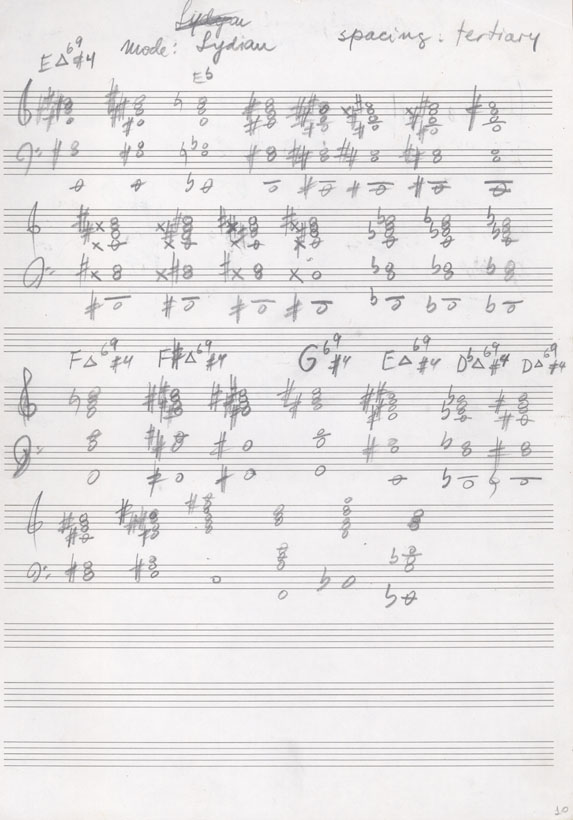 Lydyan
mode: Lydian spacing: tertiary
E△6/9 #4
Eb
F△6/9 #4 F#△6/9 #4 G6/9 #4 E△6/9 #4 Db△6/9 #4 D△6/9 #4
10